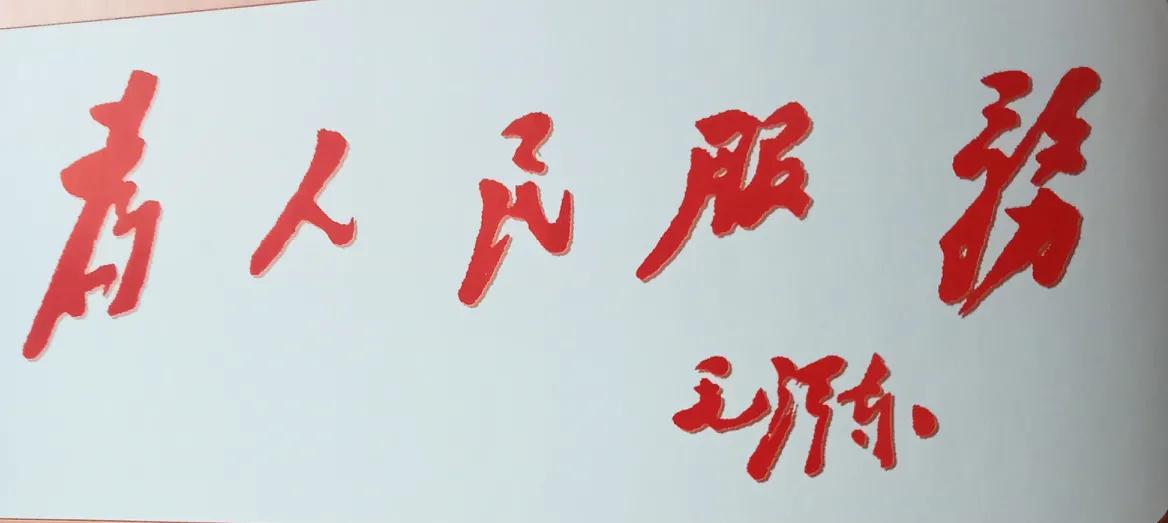 为人民服務
毛泽东